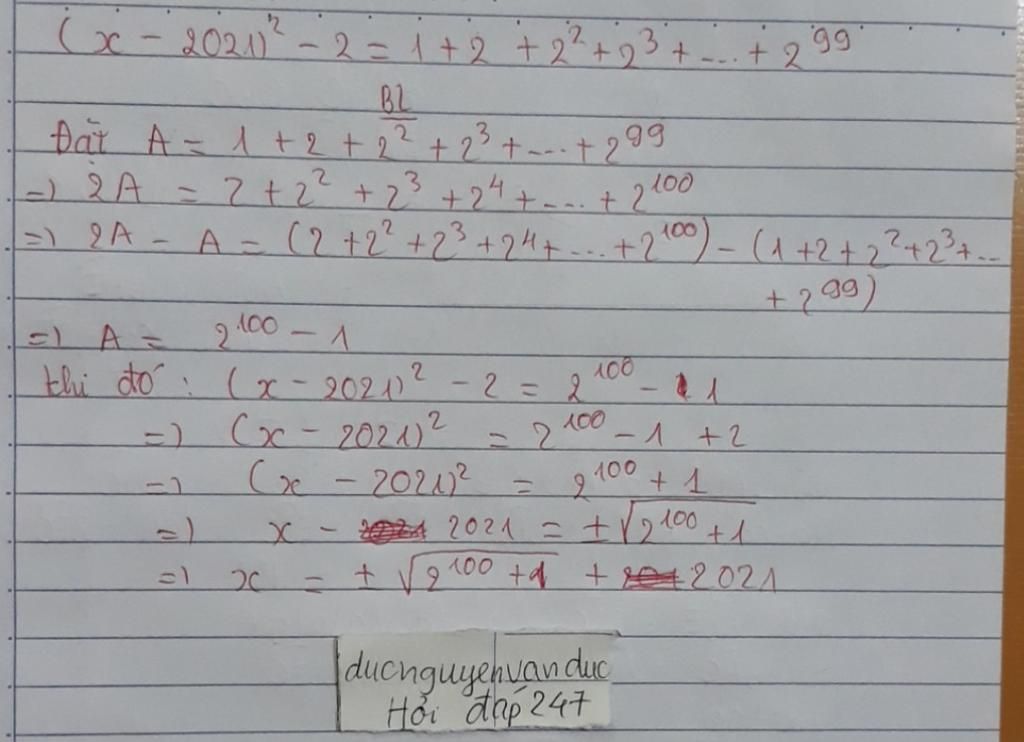 (x - 2021)² - 2 = 1 + 2 + 2² + 2³ + ... + 2⁹⁹
BL
Đặt A = 1 + 2 + 2² + 2³ + ... + 2⁹⁹
=) 2A = 2 + 2² + 2³ + 2⁴ + ... + 2¹⁰⁰
=) 2A - A = (2 + 2² + 2³ + 2⁴ + ... + 2¹⁰⁰) - (1 + 2 + 2² + 2³ + ...
+ 2⁹⁹)
=) A = 2¹⁰⁰ - 1
Khi đó: (x - 2021)² - 2 = 2¹⁰⁰ - 1
=) (x - 2021)² = 2¹⁰⁰ - 1 + 2
=) (x - 2021)² = 2¹⁰⁰ + 1
=) x - 2021 = ±√(2¹⁰⁰ + 1)
=) x = ±√(2¹⁰⁰ + 1) + 2021
ducnguyenvanduc
Hỏi đáp 247